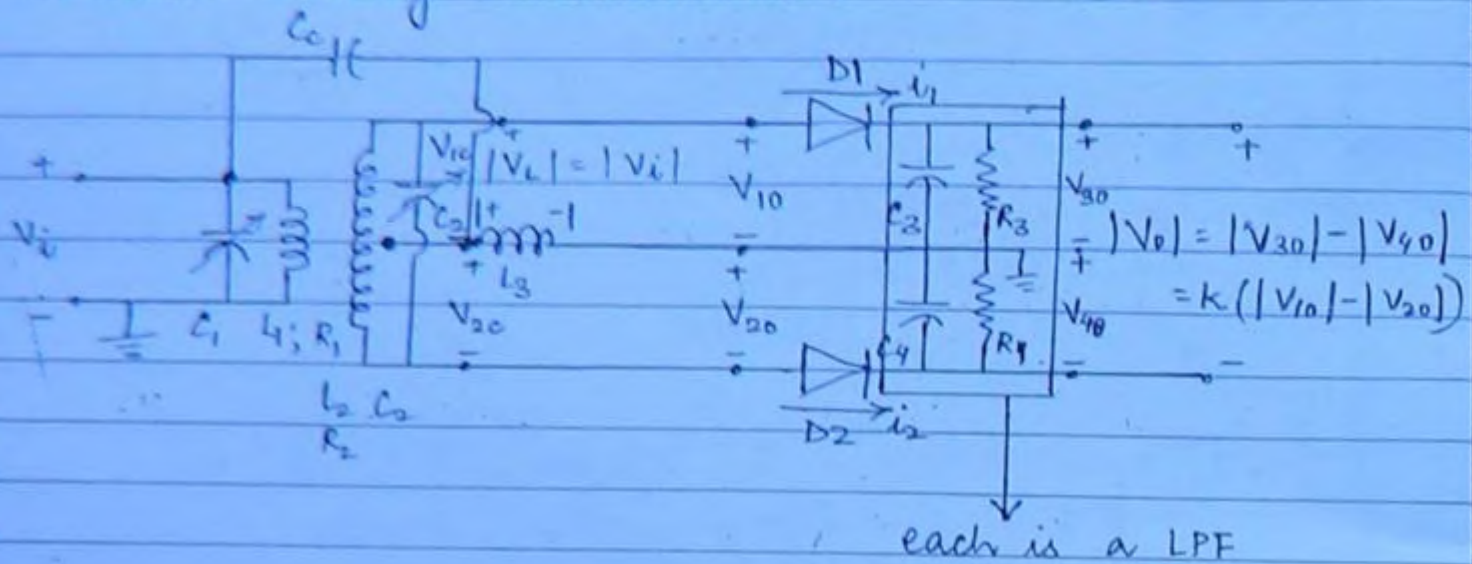 Cc
D1
i1
+
V10
+
|VL| = |Vi|
+
+
+
Vi
C2
+
-1
L3
V10
-
+
C3
R3
V30
-
+
|V0| = |V30| - |V40|
= k(|V10| - |V20|)
-
C1
L1; R1
V20
-
V20
-
C4
R4
V40
-
-
L2 C2
R2
D2
i2
each is a LPF